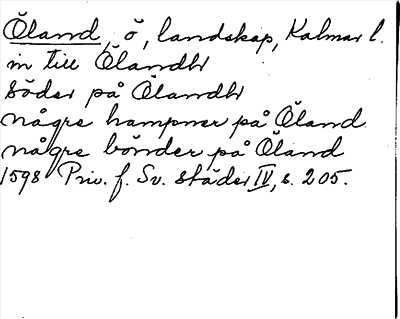 Öland, ö, landskap, Kalmar l.
in till Ölandh
söder på Ölandh
någre hampner på Öland
någre bönder på Öland
1598 Priv. f. Sv. städer IV, s. 205.